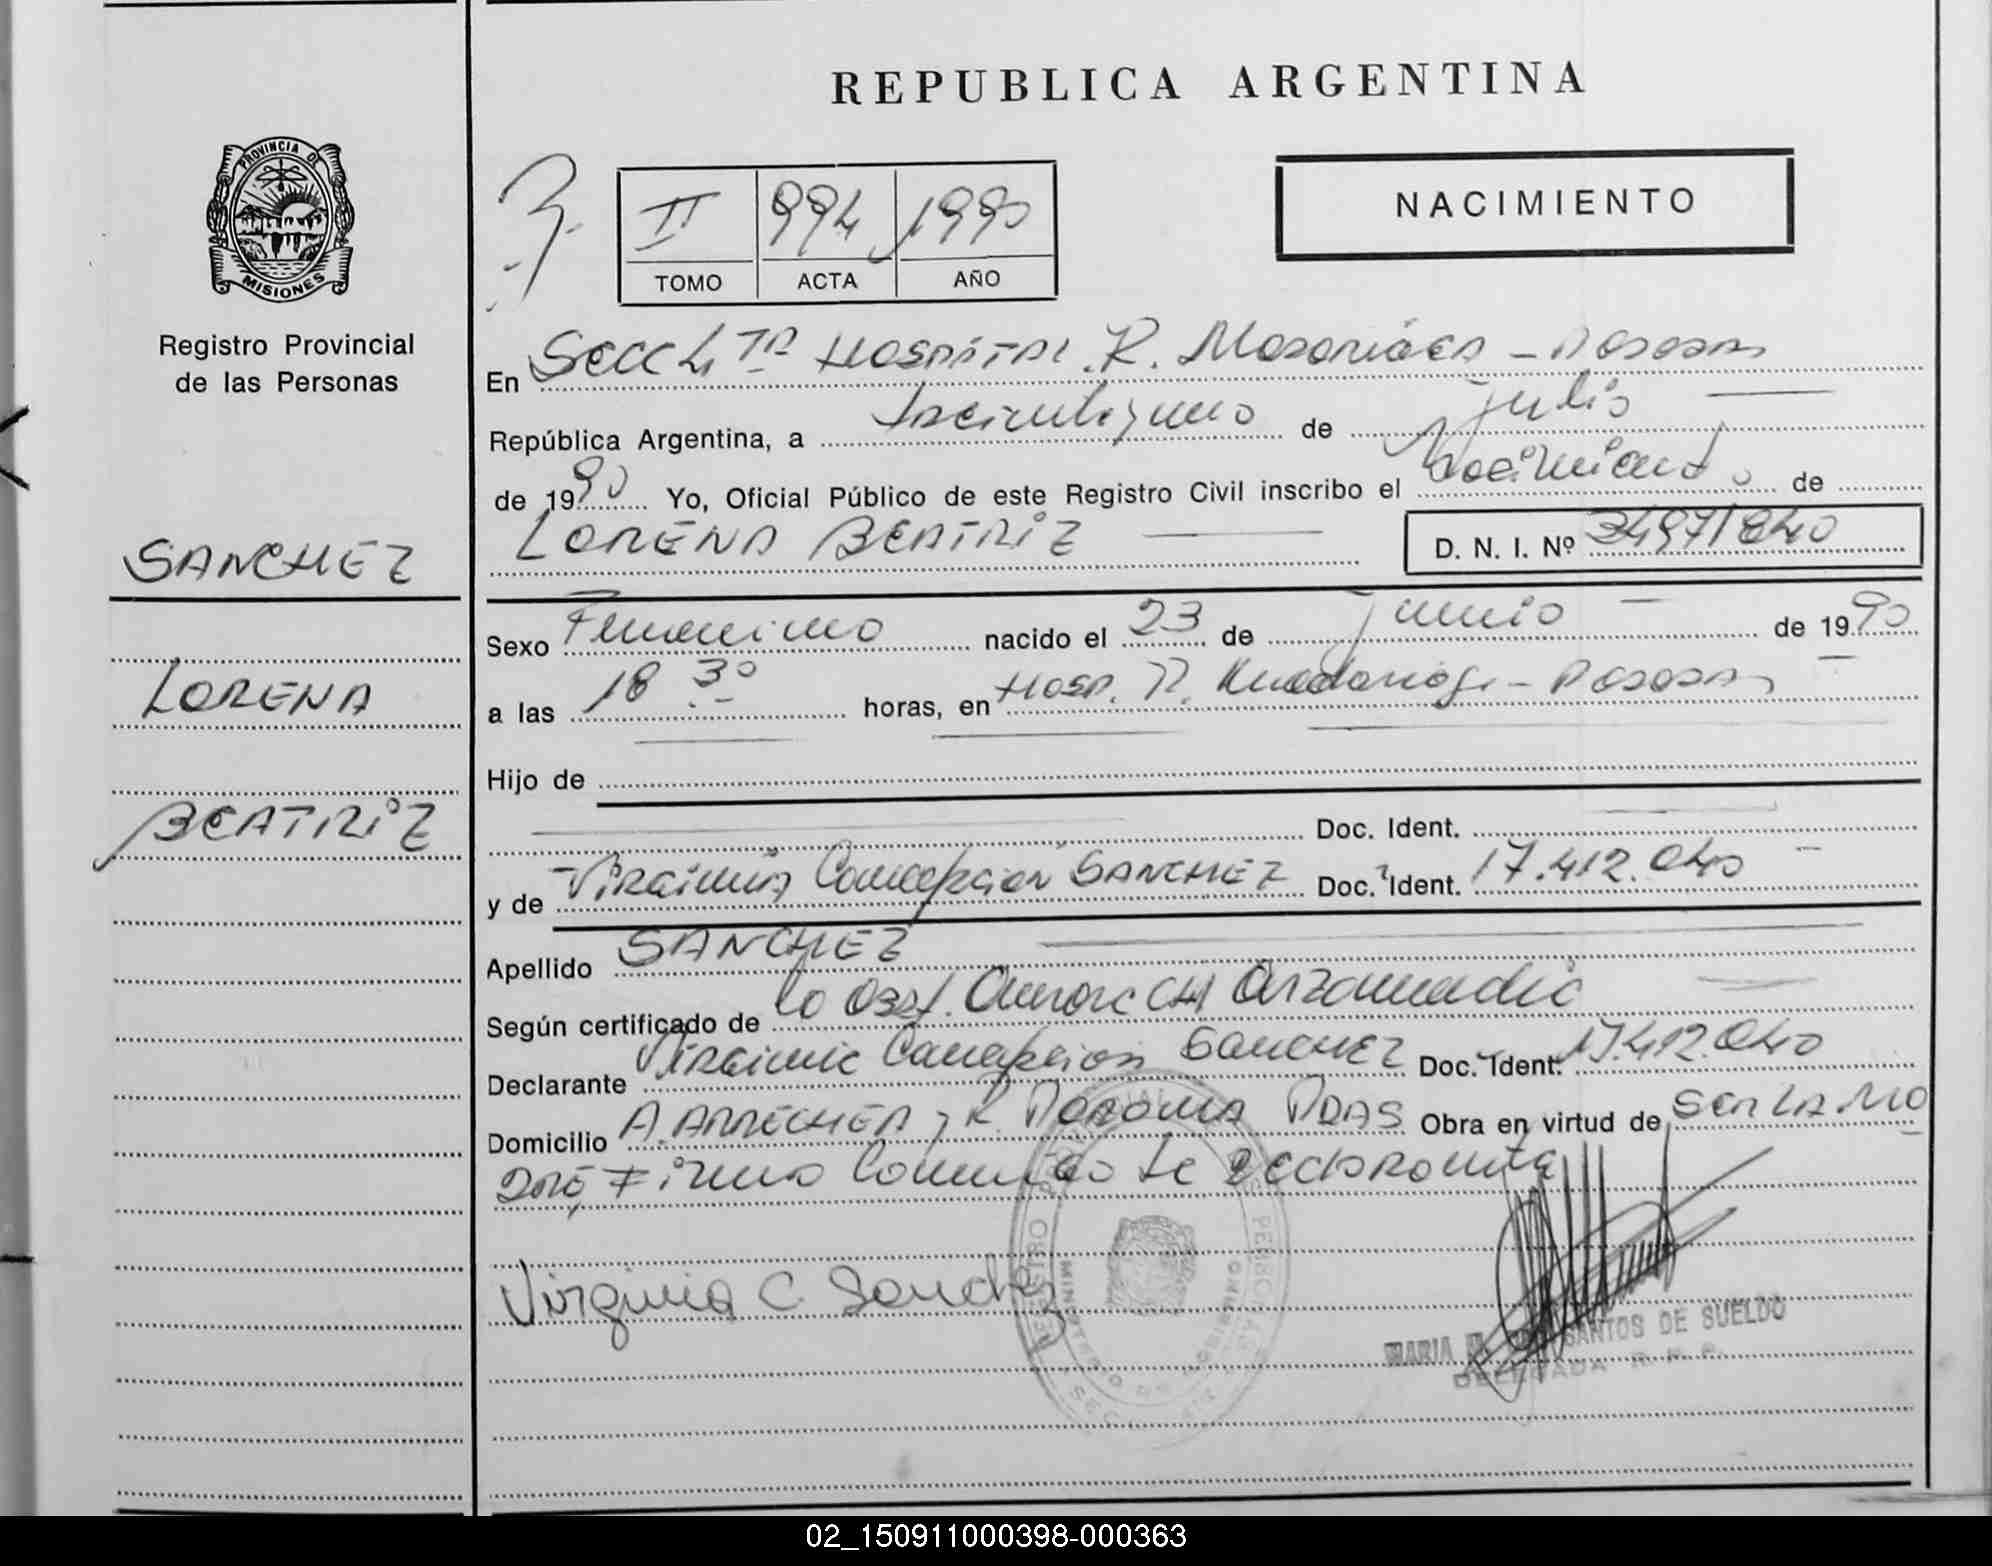 REPUBLICA ARGENTINA
PROVINCIA DE
MISIONES
Registro Provincial
de las Personas
II 994 1990
TOMO ACTA AÑO
NACIMIENTO
En Secc 4 TA HOSPITAL R. Madariaga - Posadas
República Argentina, a treintiyuno de Julio
de 1990 Yo, Oficial Público de este Registro Civil inscribo el Nacimiento de
LORENA BEATRIZ
D. N. I. Nº 34971840
SANCHEZ
LORENA
BEATRIZ
Sexo Femenino nacido el 23 de Junio de 1990
a las 18 30 horas, en Hosp. R. Madariaga - Posadas
Hijo de
Doc. Ident.
y de Virginia Concepcion SANCHEZ Doc. Ident. 17.412.040
Apellido SANCHEZ
Según certificado de la Obst.
Declarante Virginia Concepcion SANCHEZ Doc. Ident. 17.412.040
Domicilio A. ARRECHEA y R. Pdas Obra en virtud de Ser la ma
dre, Firma Conmigo la declarante
Virginia C. Sanchez
MARIA SANTOS DE SUELDO
DELEGADA R. P.
02_150911000398-000363